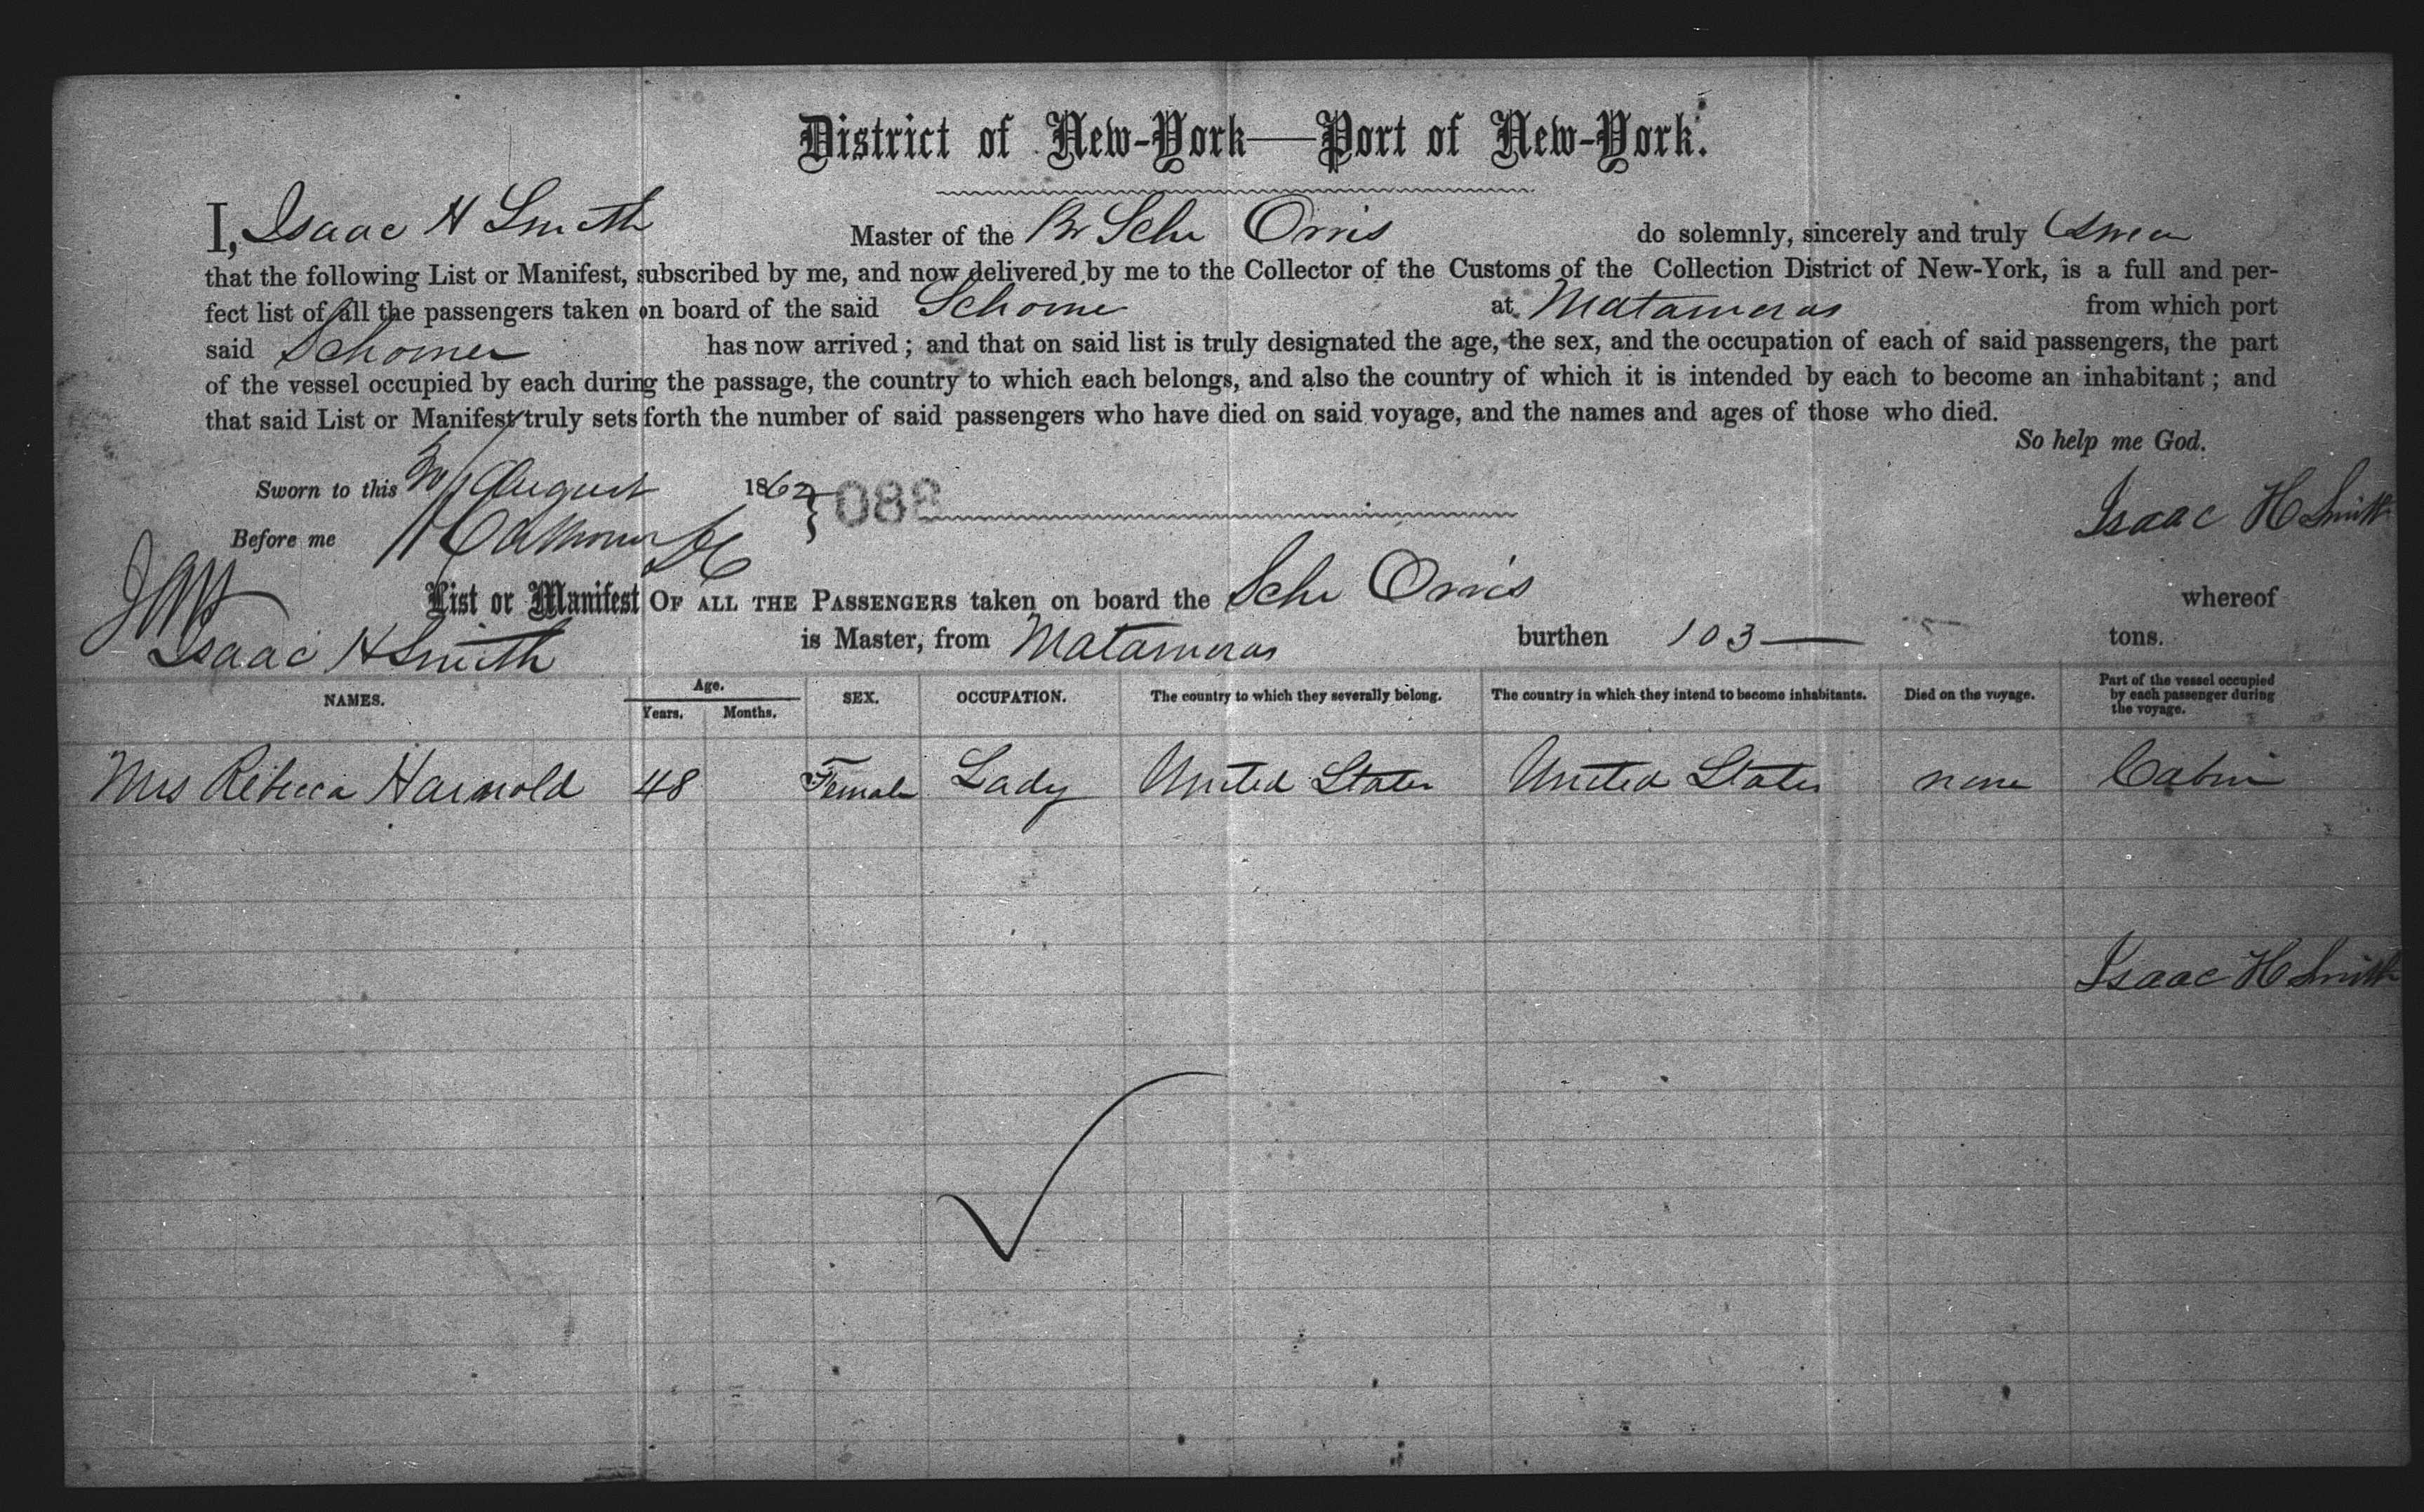 District of New-York—Port of New-York.
I, Isaac H Smith Master of the Br Schr Orris do solemnly, sincerely and truly Swear
that the following List or Manifest, subscribed by me, and now delivered by me to the Collector of the Customs of the Collection District of New-York, is a full and per-
fect list of all the passengers taken on board of the said Schoner at Matameras from which port
said Schoner has now arrived; and that on said list is truly designated the age, the sex, and the occupation of each of said passengers, the part
of the vessel occupied by each during the passage, the country to which each belongs, and also the country of which it is intended by each to become an inhabitant; and
that said List or Manifest truly sets forth the number of said passengers who have died on said voyage, and the names and ages of those who died.
So help me God.
Sworn to this August 1862 } 088
Before me
Isaac H Smith
List or Manifest OF ALL THE PASSENGERS taken on board the Schr Orris whereof
Isaac H Smith is Master, from Matameras burthen 103— tons.
NAMES. Age. Years. Months. SEX. OCCUPATION. The country to which they severally belong. The country in which they intend to become inhabitants. Died on the voyage. Part of the vessel occupied by each passenger during the voyage.
Mrs Rebecca Harnold 48 Female Lady United States United States none Cabin
Isaac H Smith